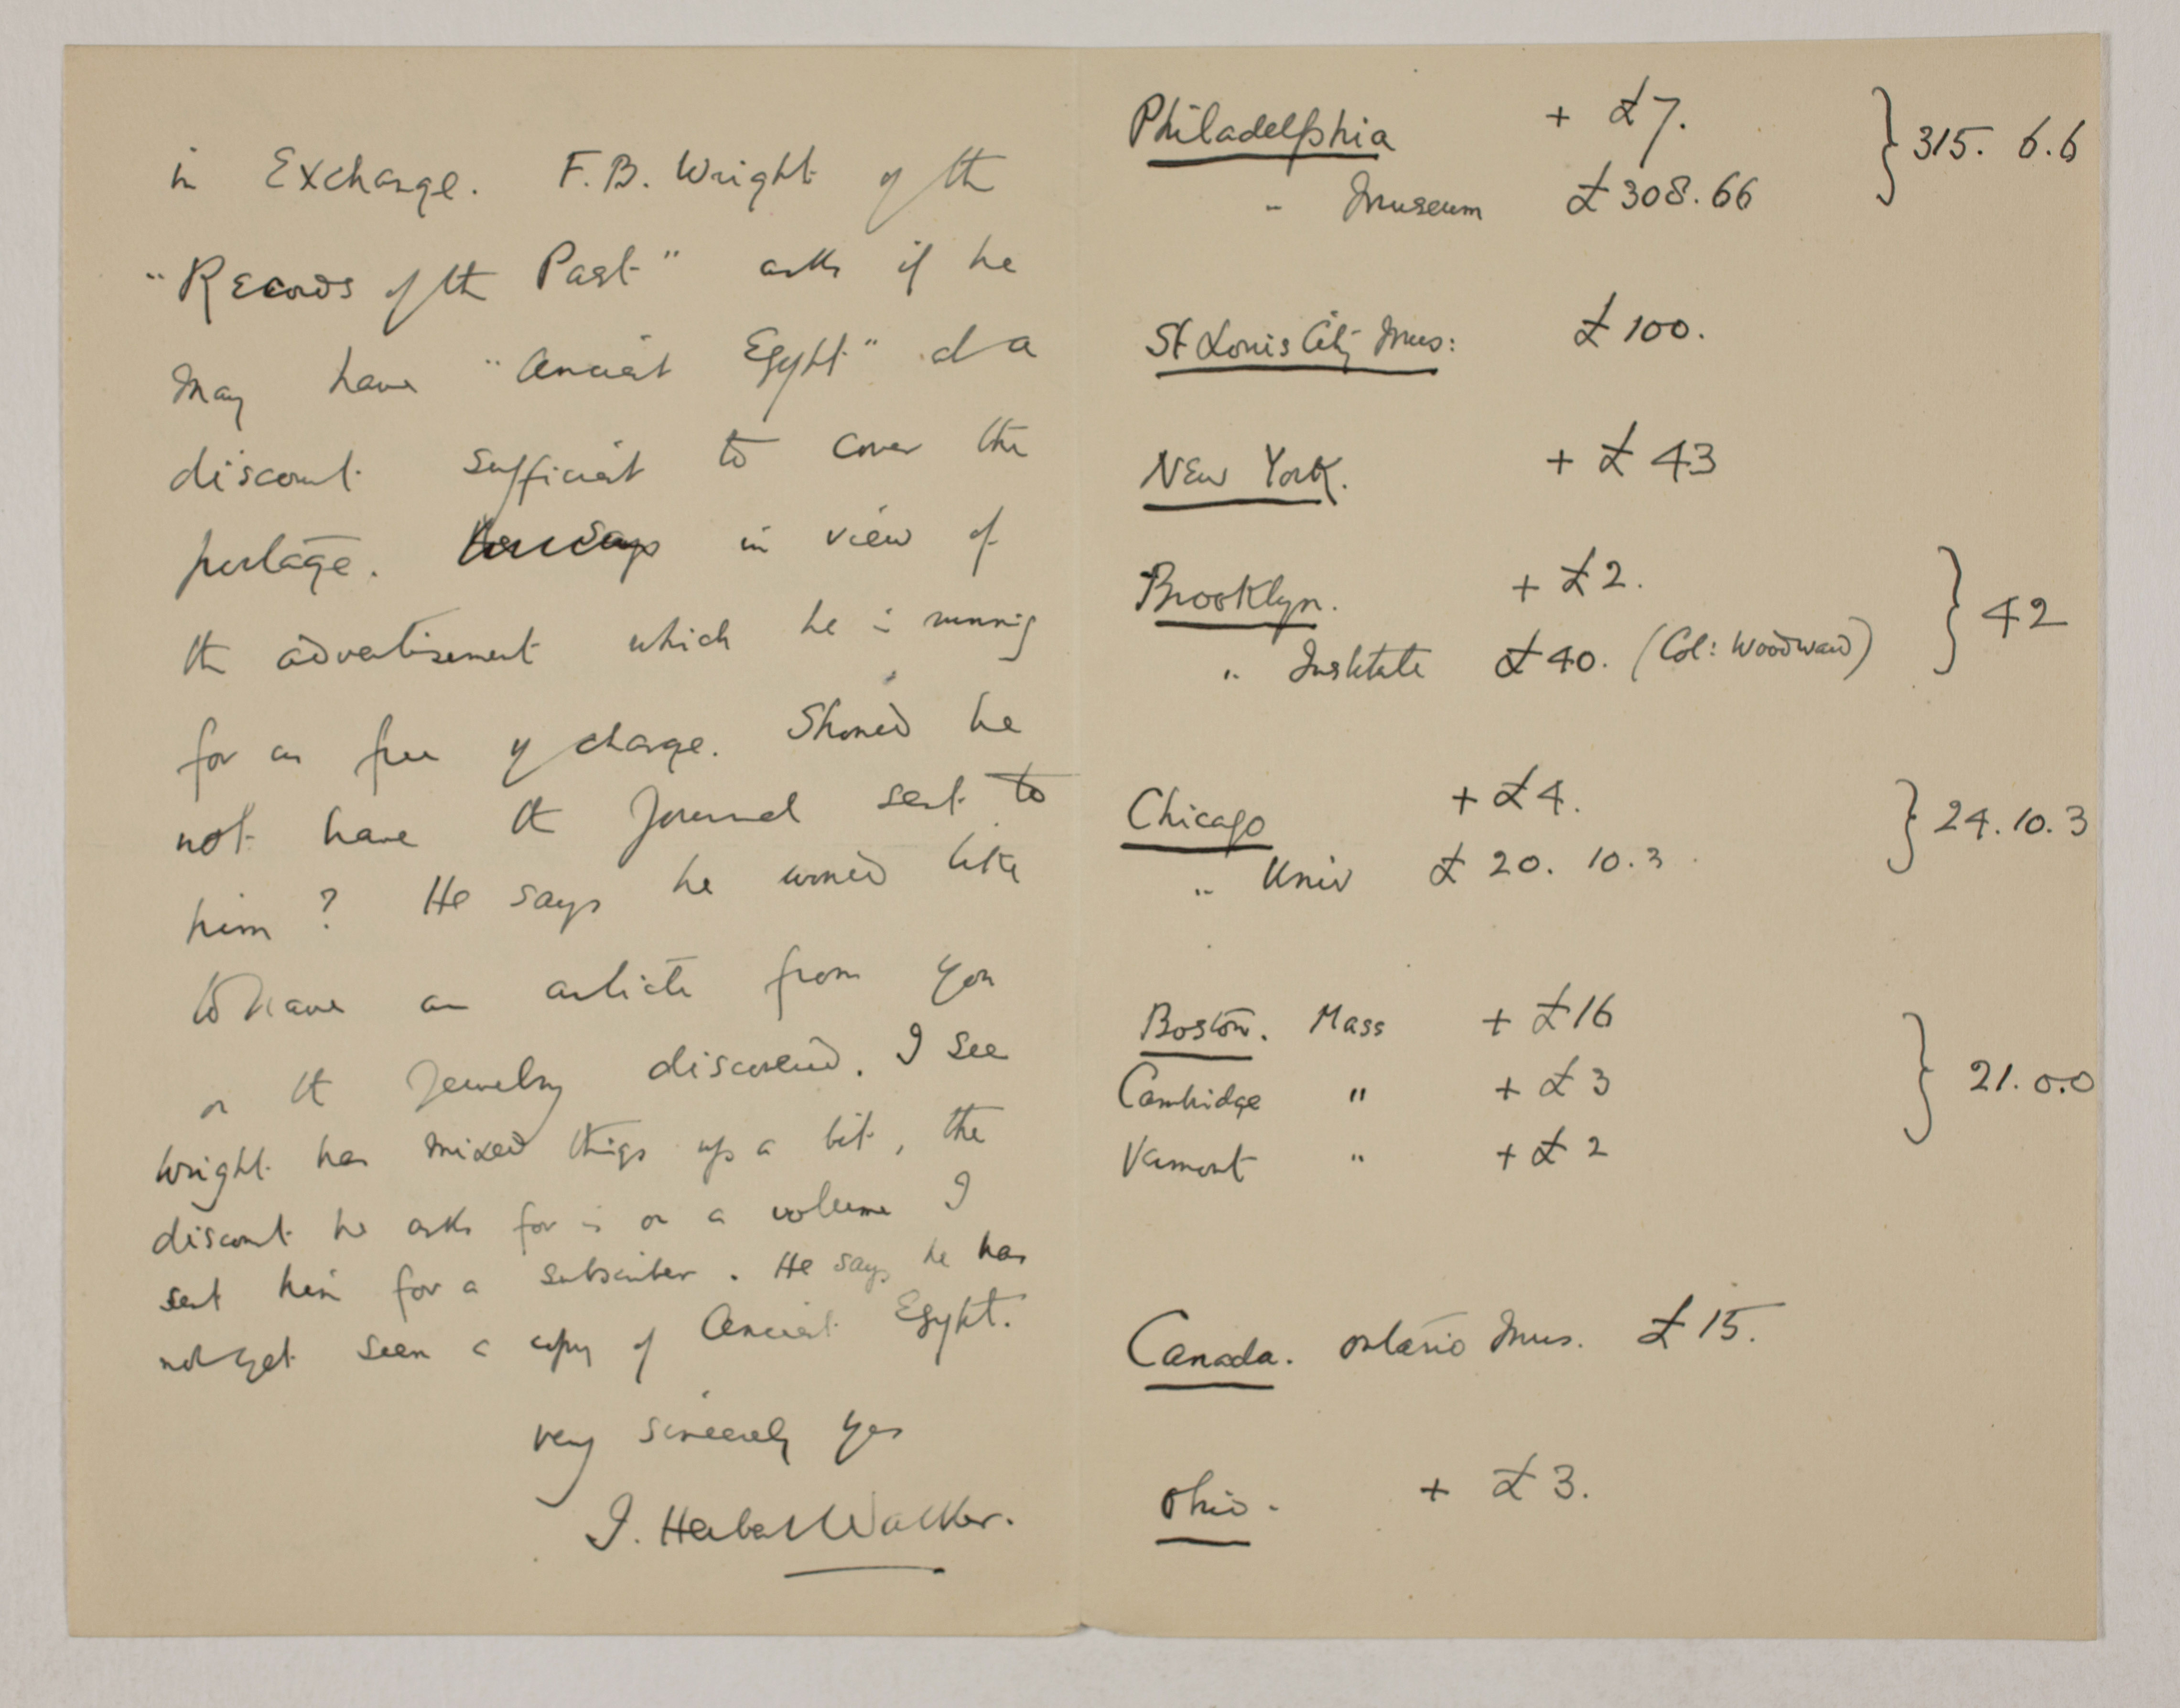 in Exchange. F.B. Wright of the
"Records of the Past" asks if he
may have "Ancient Egypt" at a
discount sufficient to cover the
postage. in view of
the advertisement which he is running
for us free of charge. Should he
not have the Journal sent to
him? He says he would like
to have an article from you
on the Jewelry discovered. I see
Wright has mixed things up a bit, the
discount he asks for is on a volume I
sent him for a subscriber. He says he has
not yet seen a copy of Ancient Egypt.
very sincerely yrs
J. Herbert Walker.
Philadelphia + £7. } 315. 6.6
" Museum £308.66
St Louis City Mus: £100.
New York. + £43
Brooklyn. + £2. } 42
" Institute £40. (Col: Woodward)
Chicago + £4. } 24.10.3
" Univ £20. 10.3
Boston. Mass + £16
Cambridge " + £3 } 21.0.0
Vermont " + £2
Canada. Ontario Mus. £15.
Ohio. + £3.